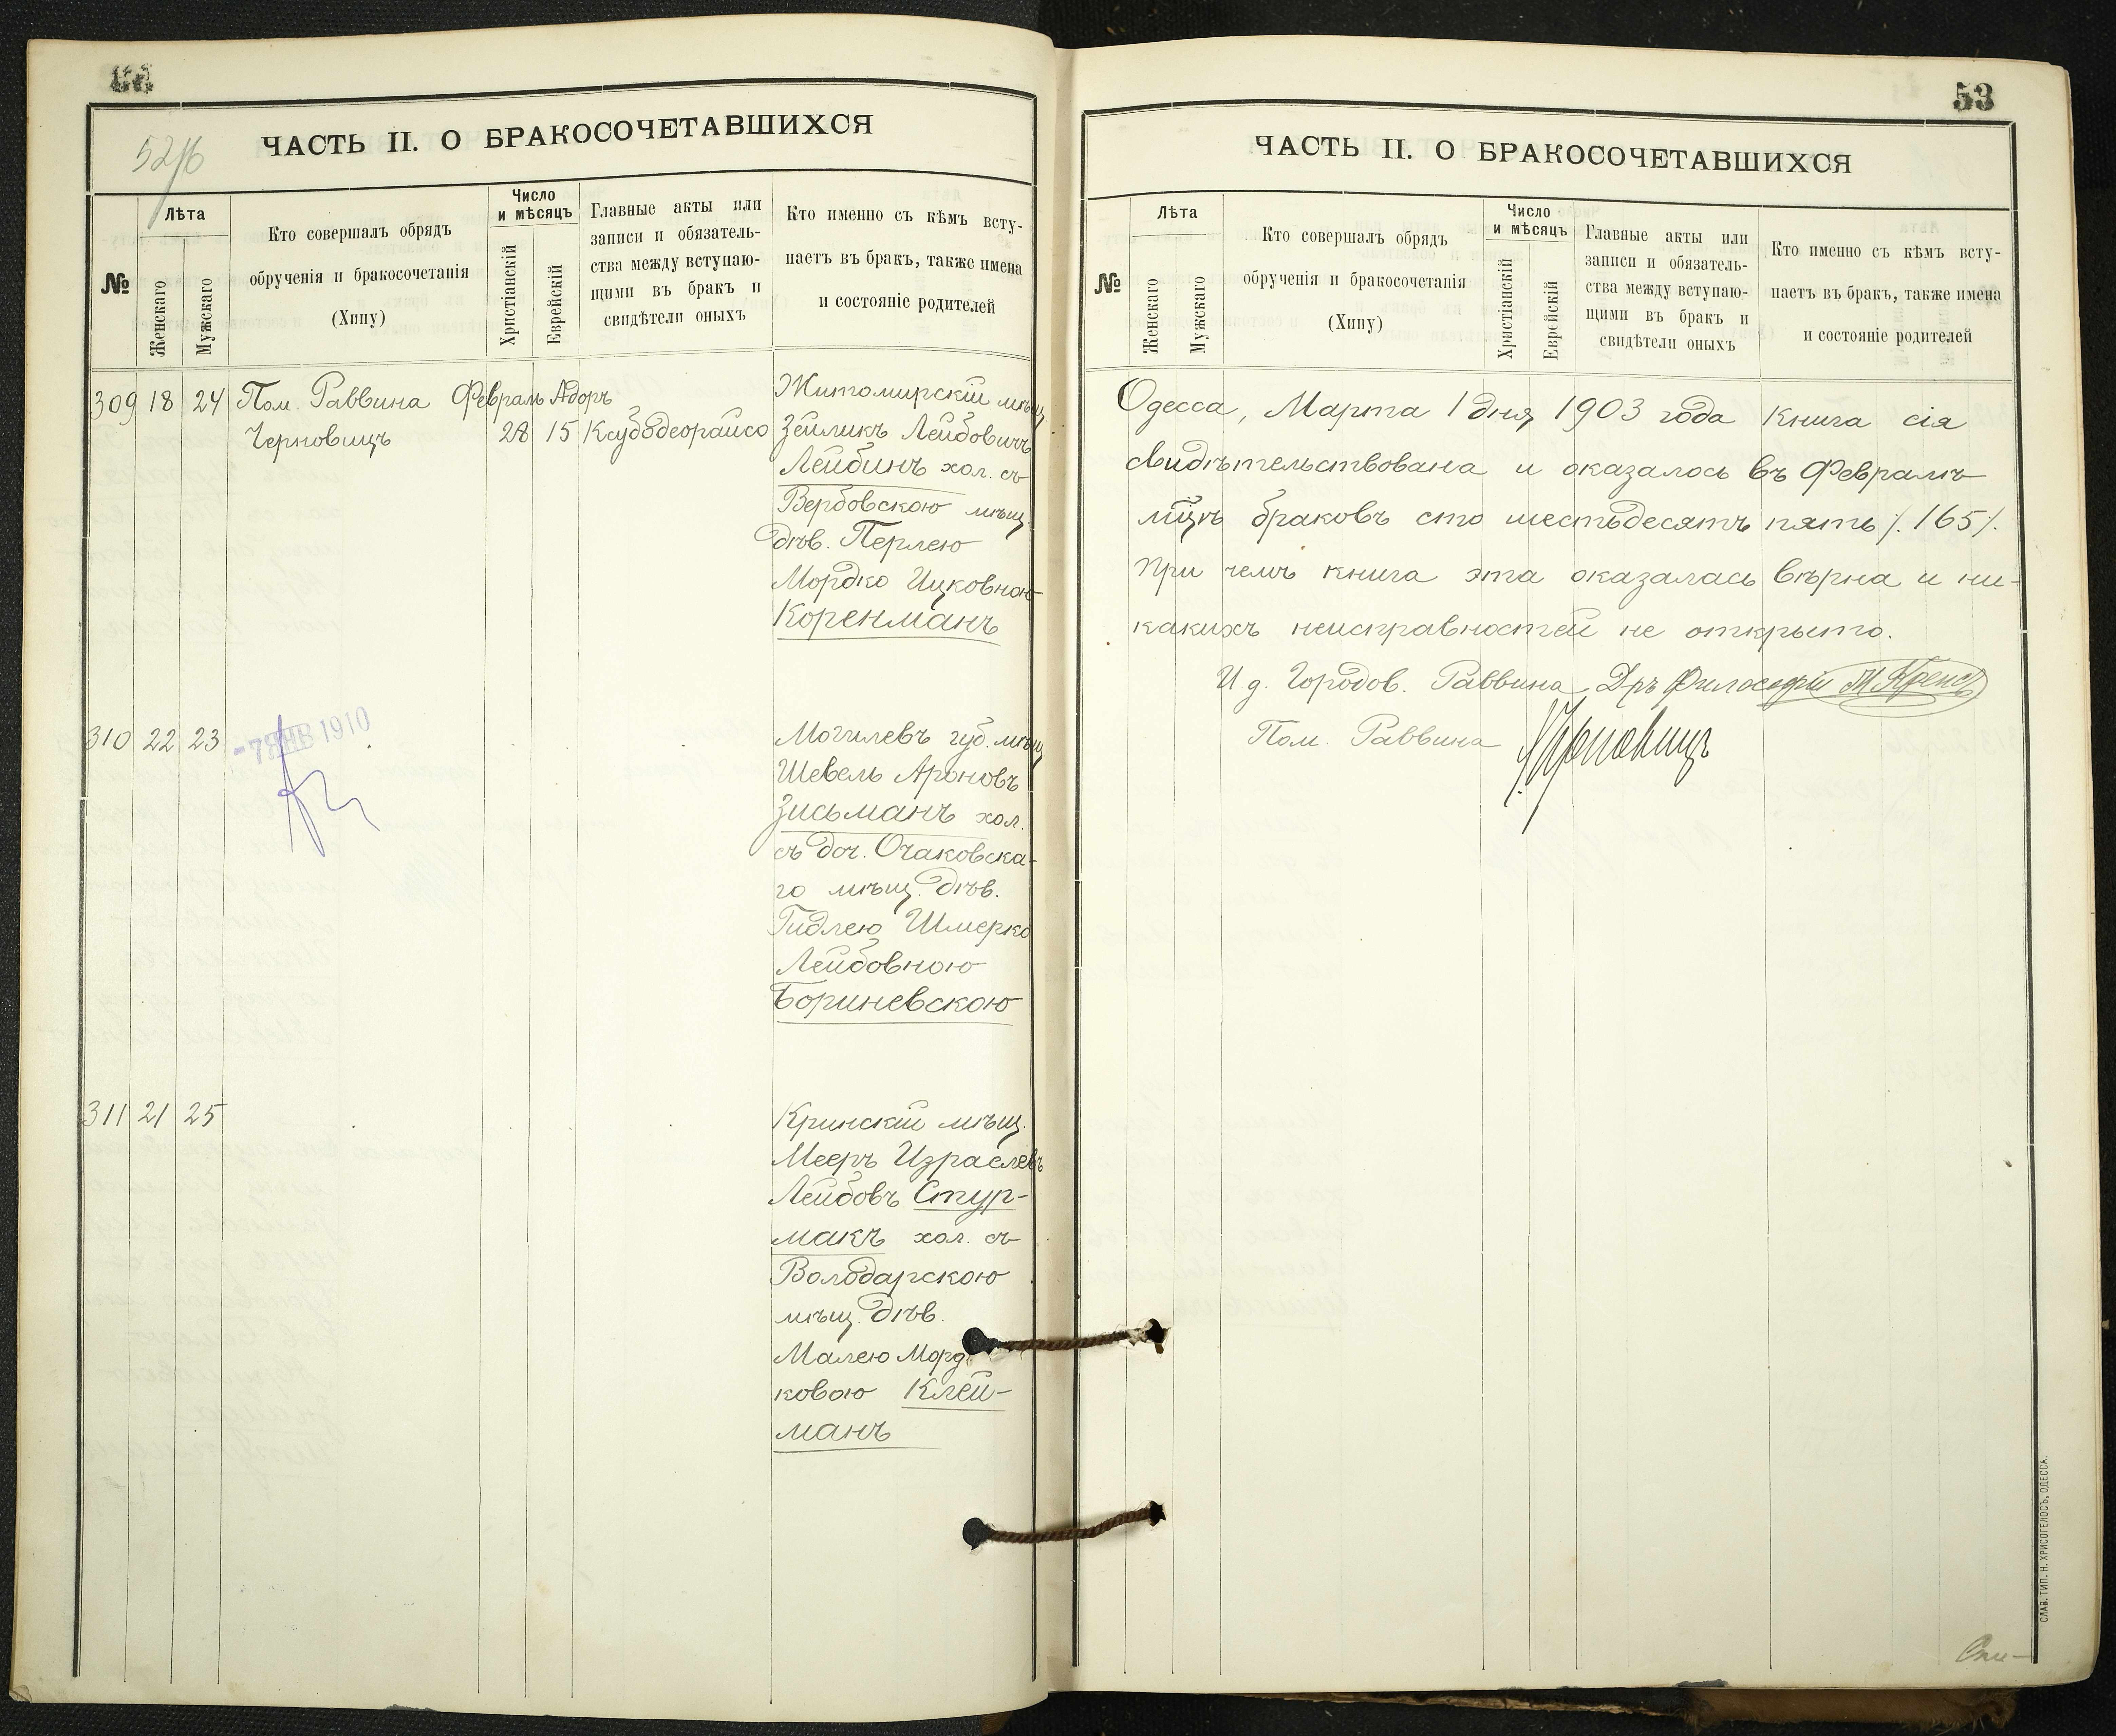 52/б
ЧАСТЬ II. О БРАКОСОЧЕТАВШИХСЯ
№
Лѣта
Женскаго
Мужскаго
Кто совершалъ обрядъ
обрученія и бракосочетанія
(Хипу)
Число
и мѣсяцъ
Христіанскій
Еврейскій
Главные акты или
записи и обязатель-
ства между вступаю-
щими въ бракъ и
свидѣтели оныхъ
Кто именно съ кѣмъ всту-
паетъ въ бракъ, также имена
и состояніе родителей
309 18 24 Пом. Раввина Февраль Адоръ
Черновицъ 28 15 Ксубодеорайсо
Житомирскій мѣщ.
Зейликъ Лейбовичъ
Лейбинъ хол. съ
Вербовскою мѣщ.
дѣв. Перлею
Мордко Ицковною
Коренманъ
310 22 23
-7 ЯНВ 1910
Могилевъ губ. мѣщ
Шевель Ароновъ
Зисьманъ хол.
съ доч. Очаковска-
го мѣщ. дѣв.
Гидлею Шмерко
Лейбовною
Бориневскою
311 21 25
Кринскій мѣщ.
Мееръ Израелевъ
Лейбовъ Стур-
макъ хол. съ
Володарскою
мѣщ. дѣв.
Малею Мордк
ковою Клей-
манъ
53
ЧАСТЬ II. О БРАКОСОЧЕТАВШИХСЯ
№
Лѣта
Женскаго
Мужскаго
Кто совершалъ обрядъ
обрученія и бракосочетанія
(Хипу)
Число
и мѣсяцъ
Христіанскій
Еврейскій
Главные акты или
записи и обязатель-
ства между вступаю-
щими въ бракъ и
свидѣтели оныхъ
Кто именно съ кѣмъ всту-
паетъ въ бракъ, также имена
и состояніе родителей
Одесса, Марта 1 дня 1903 года книга сія
свидѣтельствована и оказалось въ Февралѣ
мцѣ браковъ сто шестьдесятъ пять ./.165./.
При чемъ книга эта оказалась вѣрна и ни-
какихъ неисправностей не открыто.
И. д. Городов. Раввина Дръ Философіи
Пом. Раввина Черновицъ
СЛАВ. ТИП. Н. ХРИСОГЕЛОСЪ, ОДЕССА.